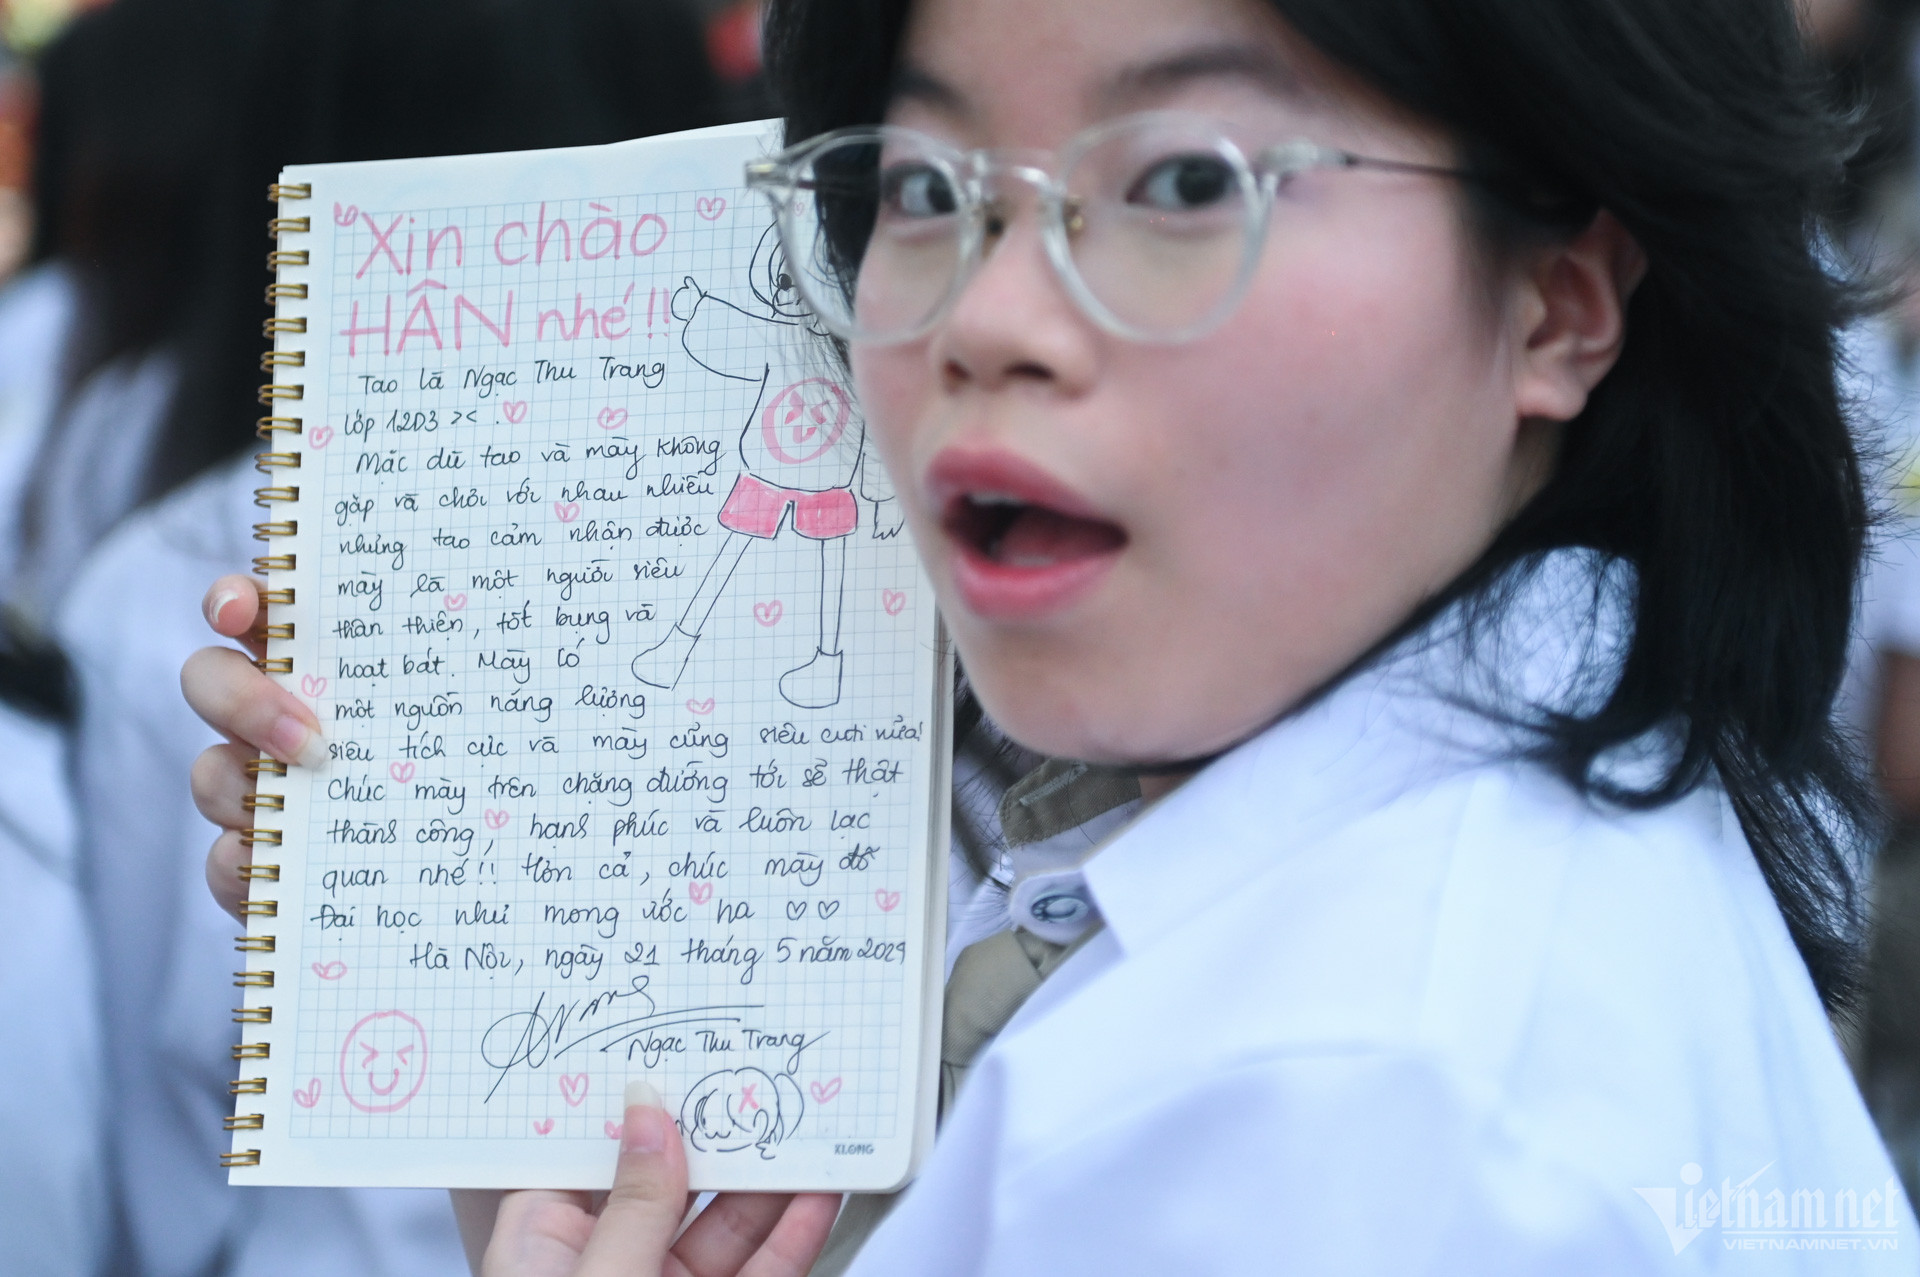 Xin chào
HÂN nhé!!
Tao là Ngạc Thu Trang
lớp 12D3 >< .
Mặc dù tao và mày không
gặp và chơi với nhau nhiều
nhưng tao cảm nhận được
mày là một người siêu
thân thiện, tốt bụng và
hoạt bát. Mày có
một nguồn năng lượng
siêu tích cực và mày cũng siêu cười nữa!
Chúc mày trên chặng đường tới sẽ thật
thành công, hạnh phúc và luôn lạc
quan nhé!! Hơn cả, chúc mày đỗ
Đại học như mong ước ha ♡♡
Hà Nội, ngày 21 tháng 5 năm 2024
Ngạc Thu Trang
KLONG
Vietnamnet
VIETNAMNET.VN